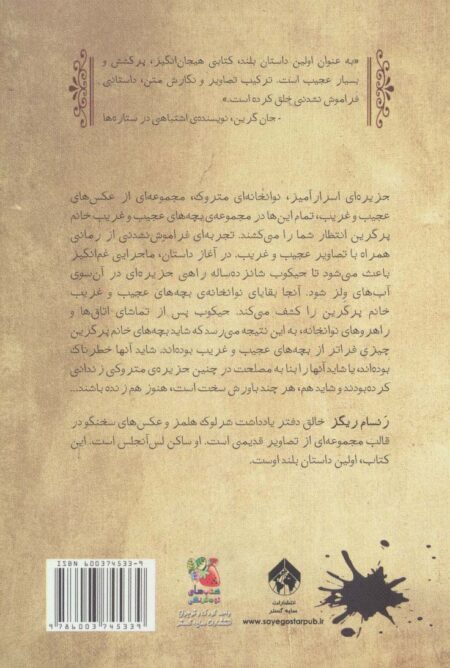 «به عنوان اولین داستان بلند، کتابی هیجان‌انگیز، پرکشش و
بسیار عجیب است. ترکیب تصاویر و نگارش متن، داستانی
فراموش نشدنی خلق کرده است.»
- جان گرین، نویسنده‌ی اشتباهی در ستاره‌ها
جزیره‌ای اسرارآمیز، نوانخانه‌ای متروک، مجموعه‌ای از عکس‌های
عجیب و غریب، تمام این‌ها در مجموعه‌ی بچه‌های عجیب و غریب خانم
پرگرین انتظار شما را می‌کشند. تجربه‌ای فراموش‌نشدنی از رمانی
همراه با تصاویر عجیب و غریب. در آغاز داستان، ماجرایی غم‌انگیز
باعث می‌شود تا جیکوب شانزده‌ساله راهی جزیره‌ای در آن‌سوی
آب‌های ولز شود. آنجا بقایای نوانخانه‌ی بچه‌های عجیب و غریب
خانم پرگرین را کشف می‌کند. جیکوب پس از تماشای اتاق‌ها و
راهروهای نوانخانه، به این نتیجه می‌رسد که شاید بچه‌های خانم پرگرین
چیزی فراتر از بچه‌های عجیب و غریب بوده‌اند. شاید آنها خطرناک
بوده‌اند، یا شاید آنها را بنا به مصلحت در چنین جزیره‌ی متروکی زندانی
کرده بودند و شاید هم، هر چند باورش سخت است، هنوز هم زنده باشند...
رنسام ریگز خالق دفتر یادداشت شرلوک هلمز و عکس‌های سخنگو در
قالب مجموعه‌ای از تصاویر قدیمی است. او ساکن لس‌آنجلس است. این
کتاب، اولین داستان بلند اوست.
انتشارات
سایه گستر
www.sayegostarpub.ir
کتاب‌های
توت‌فرنگی
واحد کودک و نوجوان
انتشارات سایه گستر
ISBN 600374533-9
9 786003 745339